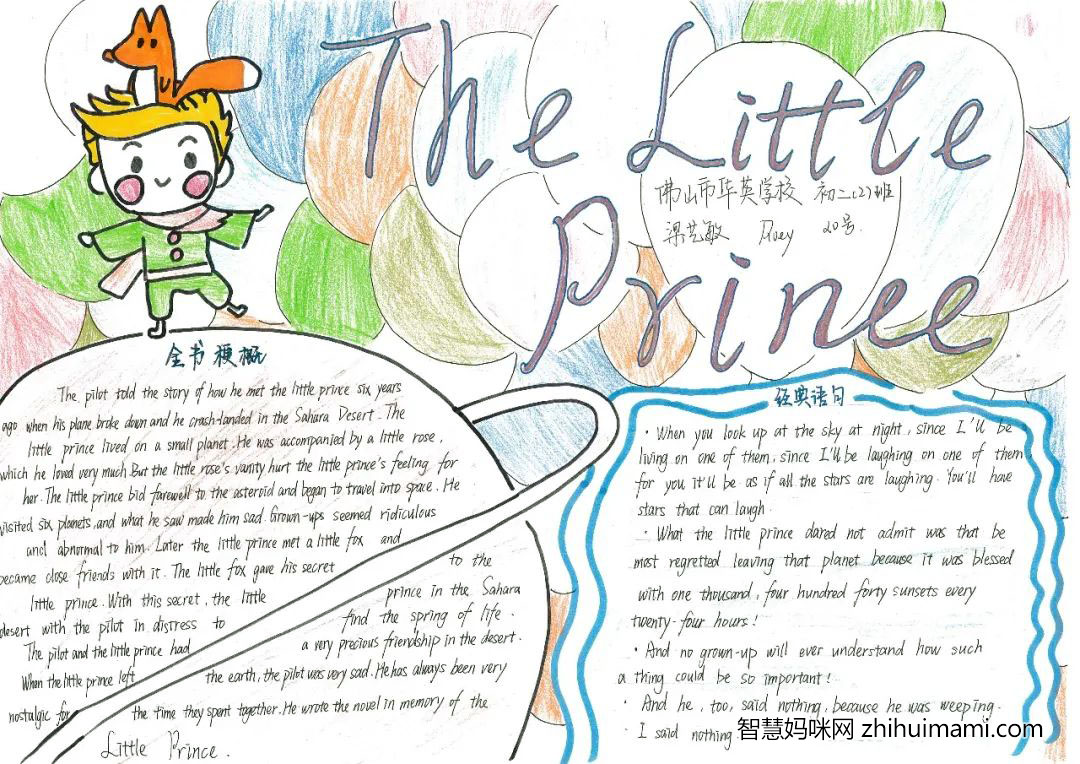 The Little
Prince
佛山市华英学校 初二(2)班
梁艺敏 20号
全书梗概
The pilot told the story of how he met the little prince six years
ago when his plane broke down and he crash-landed in the Sahara Desert. The
little prince lived on a small planet. He was accompanied by a little rose,
which he loved very much. But the little rose's vanity hurt the little prince's feeling for
her. The little prince bid farewell to the asteroid and began to travel into space. He
visited six planets, and what he saw made him sad. Grown-ups seemed ridiculous
and abnormal to him. Later the little prince met a little fox and
became close friends with it. The little fox gave his secret to the
little prince. With this secret, the little prince in the Sahara
desert with the pilot in distress to find the spring of life.
The pilot and the little prince had a very precious friendship in the desert.
When the little prince left the earth, the pilot was very sad. He has always been very
nostalgic for the time they spent together. He wrote the novel in memory of the
Little Prince.
经典语句
· When you look up at the sky at night, since I'll be
living on one of them, since I'll be laughing on one of them,
for you it'll be as if all the stars are laughing. You'll have
stars that can laugh.
· What the little prince dared not admit was that be
most regretted leaving that planet because it was blessed
with one thousand, four hundred forty sunsets every
twenty-four hours!
· And no grown-up will ever understand how such
a thing could be so important!
· And he, too, said nothing, because he was weeping.
· I said nothing
智慧妈咪网 zhihuimami.com